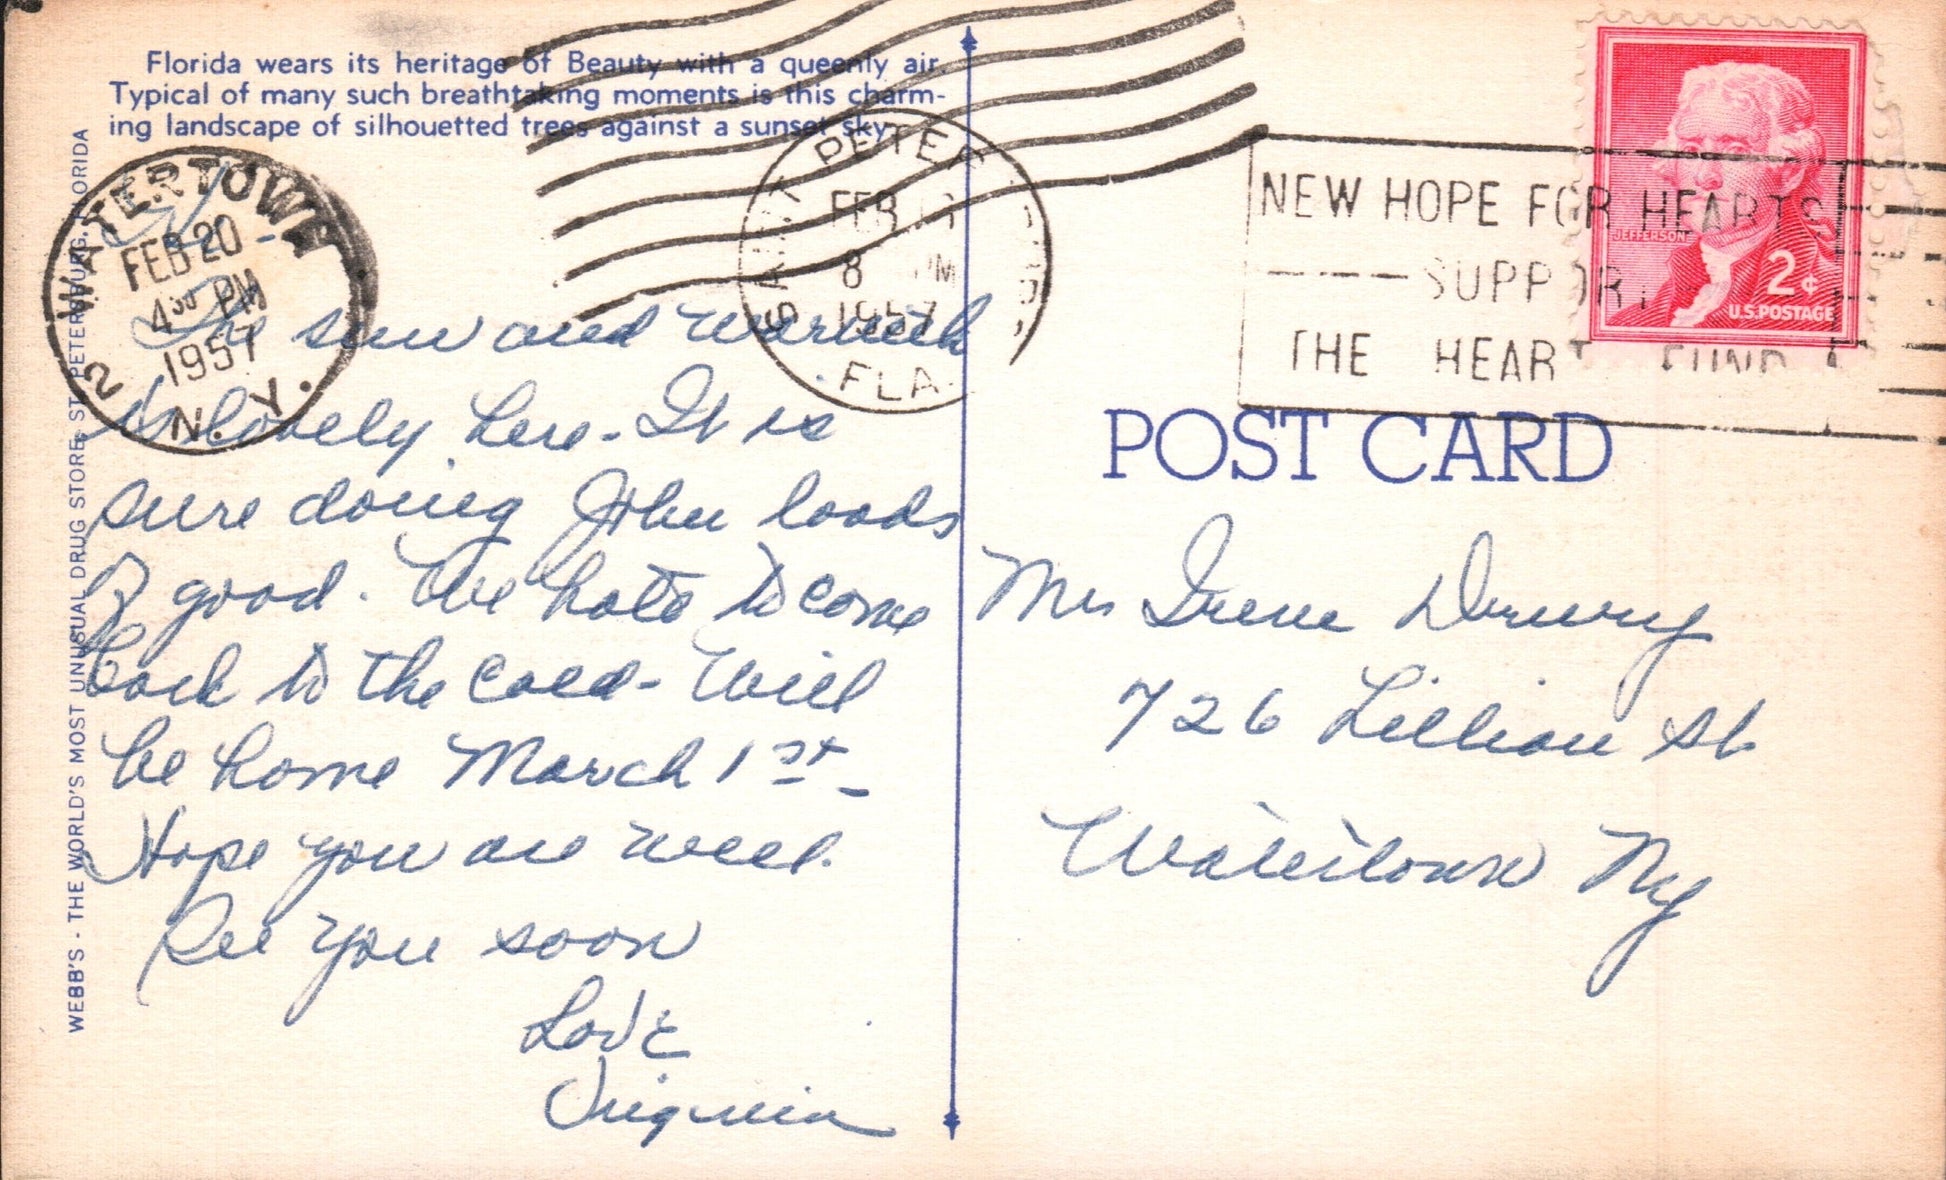 Florida wears its heritage of Beauty with a queenly air
Typical of many such breathtaking moments is this charm-
ing landscape of silhouetted trees against a sunset sky.
WEBB'S - THE WORLD'S MOST UNUSUAL DRUG STORE, ST. PETERSBURG, FLORIDA
WATERTOWN 2
FEB 20
4 30 PM
1957
N. Y.
SAINT PETER
FEB
8 PM
1957
FLA.
NEW HOPE FOR HEARTS
SUPPORT
THE HEART FUND
JEFFERSON
2¢
U.S. POSTAGE
POST CARD
Hi -
The sun and warmth
is lovely here - It is
sure doing John loads
of good. We hate to come
back to the cold - Will
be home March 1st -
Hope you are well.
See you soon
Love
Virginia
Mrs Irene Drury
726 Lillian St
Watertown Ny